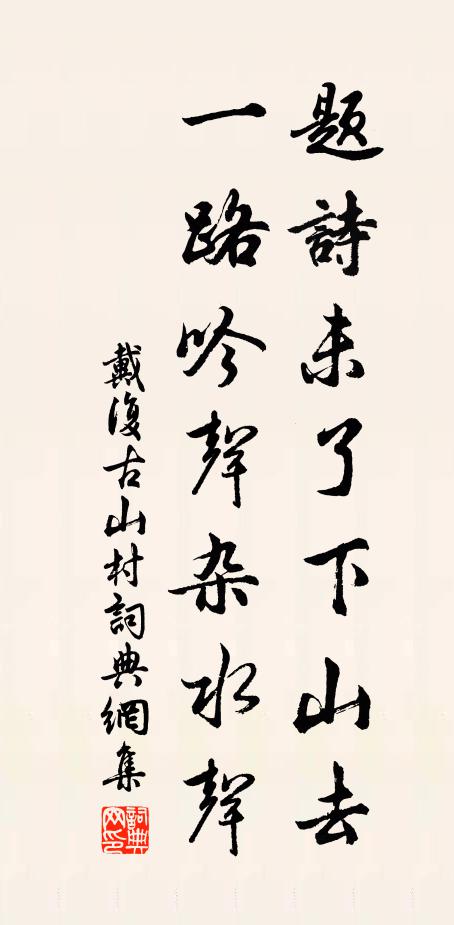 題詩未了下山去
一路吟聲杂水聲
戴復古山村詞典網集
詞典网印